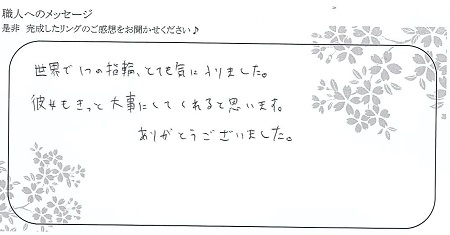 職人へのメッセージ
是非 完成したリングのご感想をお聞かせください♪
世界で1つの指輪、とても気に入りました。
彼女もきっと大事にしてくれると思います。
ありがとうございました。